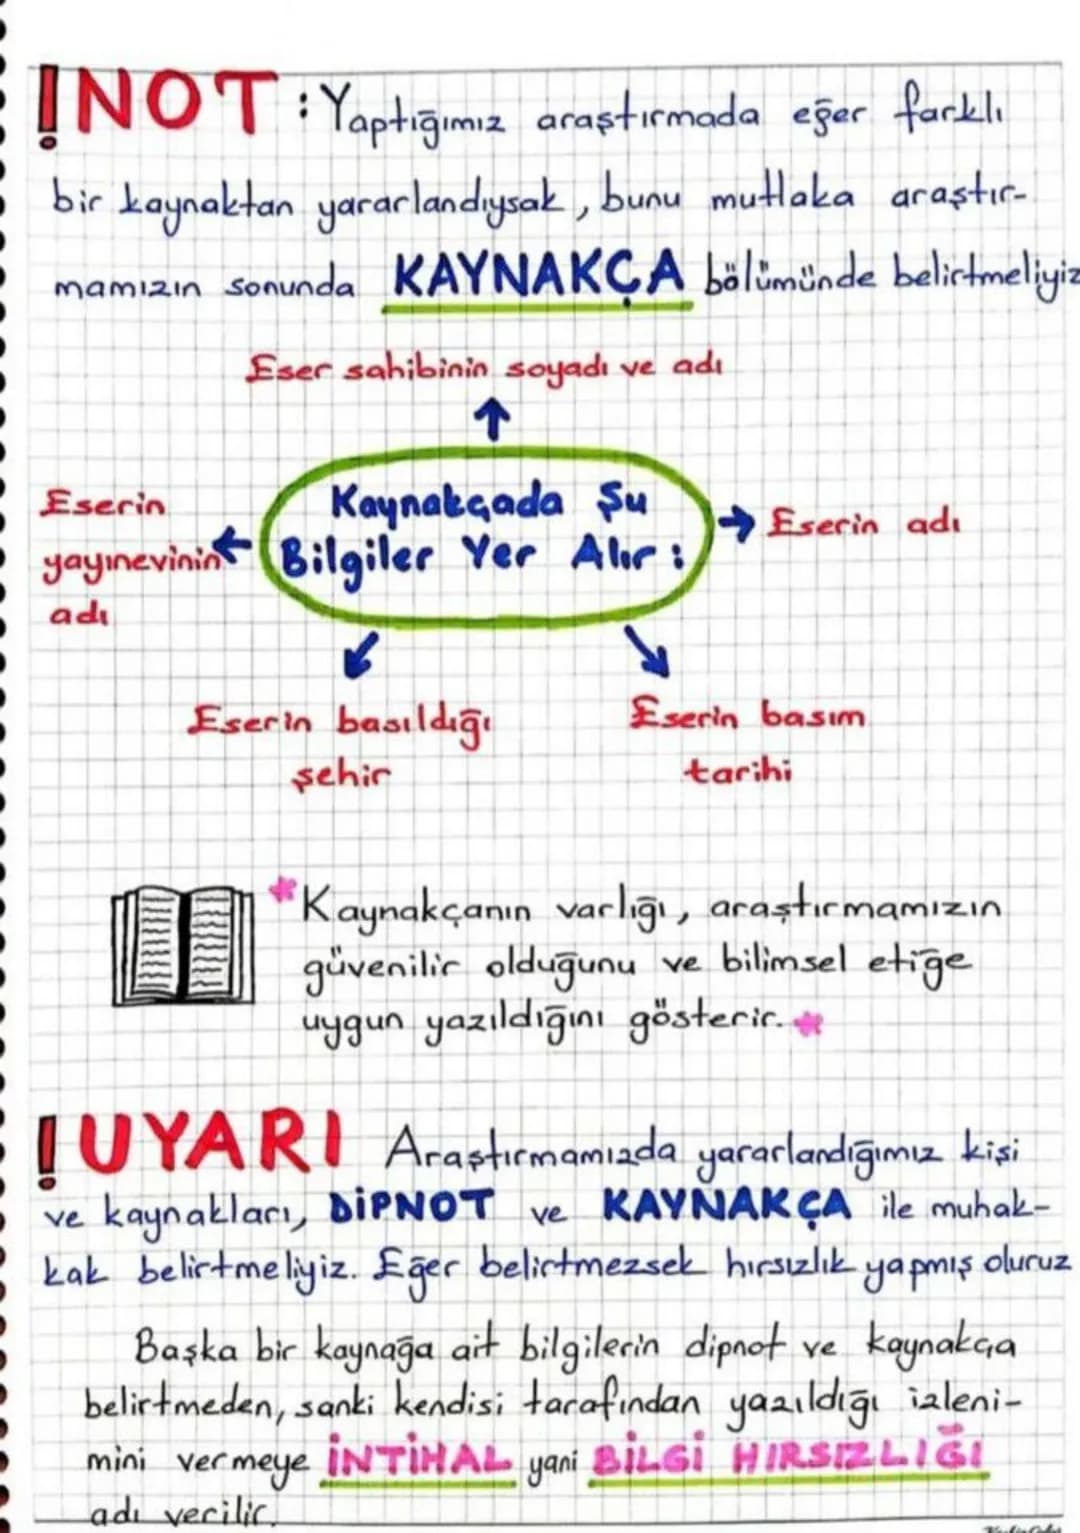 ! NOT : Yaptığımız araştırmada eğer farklı
bir kaynaktan yararlandıysak, bunu mutlaka araştır-
mamızın sonunda KAYNAKÇA bölümünde belirtmeliyiz
Eser sahibinin soyadı ve adı
Kaynakçada Şu
Bilgiler Yer Alır :
Eserin
yayınevinin
adı
Eserin adı
Eserin basıldığı
şehir
Eserin basım
tarihi
*Kaynakçanın varlığı, araştırmamızın
güvenilir olduğunu ve bilimsel etiğe
uygun yazıldığını gösterir. *
! UYARI Araştırmamızda yararlandığımız kişi
ve kaynakları, DİPNOT ve KAYNAKÇA ile muhak-
kak belirtmeliyiz. Eğer belirtmezsek hırsızlık yapmış oluruz
Başka bir kaynağa ait bilgilerin dipnot ve kaynakça
belirtmeden, sanki kendisi tarafından yazıldığı izleni-
mini vermeye İNTİHAL yani BİLGİ HIRSIZLIĞI
adı verilir.